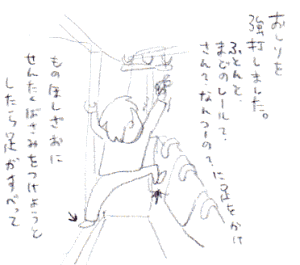 おしりを
強打しました。
ふとんと
まどのレールで、
さんで、なんつーの?に足をかけ
もの ほしざおに
せんたくばさみをつけようと
したら足がすべって